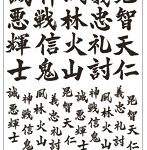 兄智天仁
義忠礼討
風林火山
神戦信鬼
誠悪輝士
兄智天仁
義忠礼討
風林火山
神戦信鬼
誠悪輝士